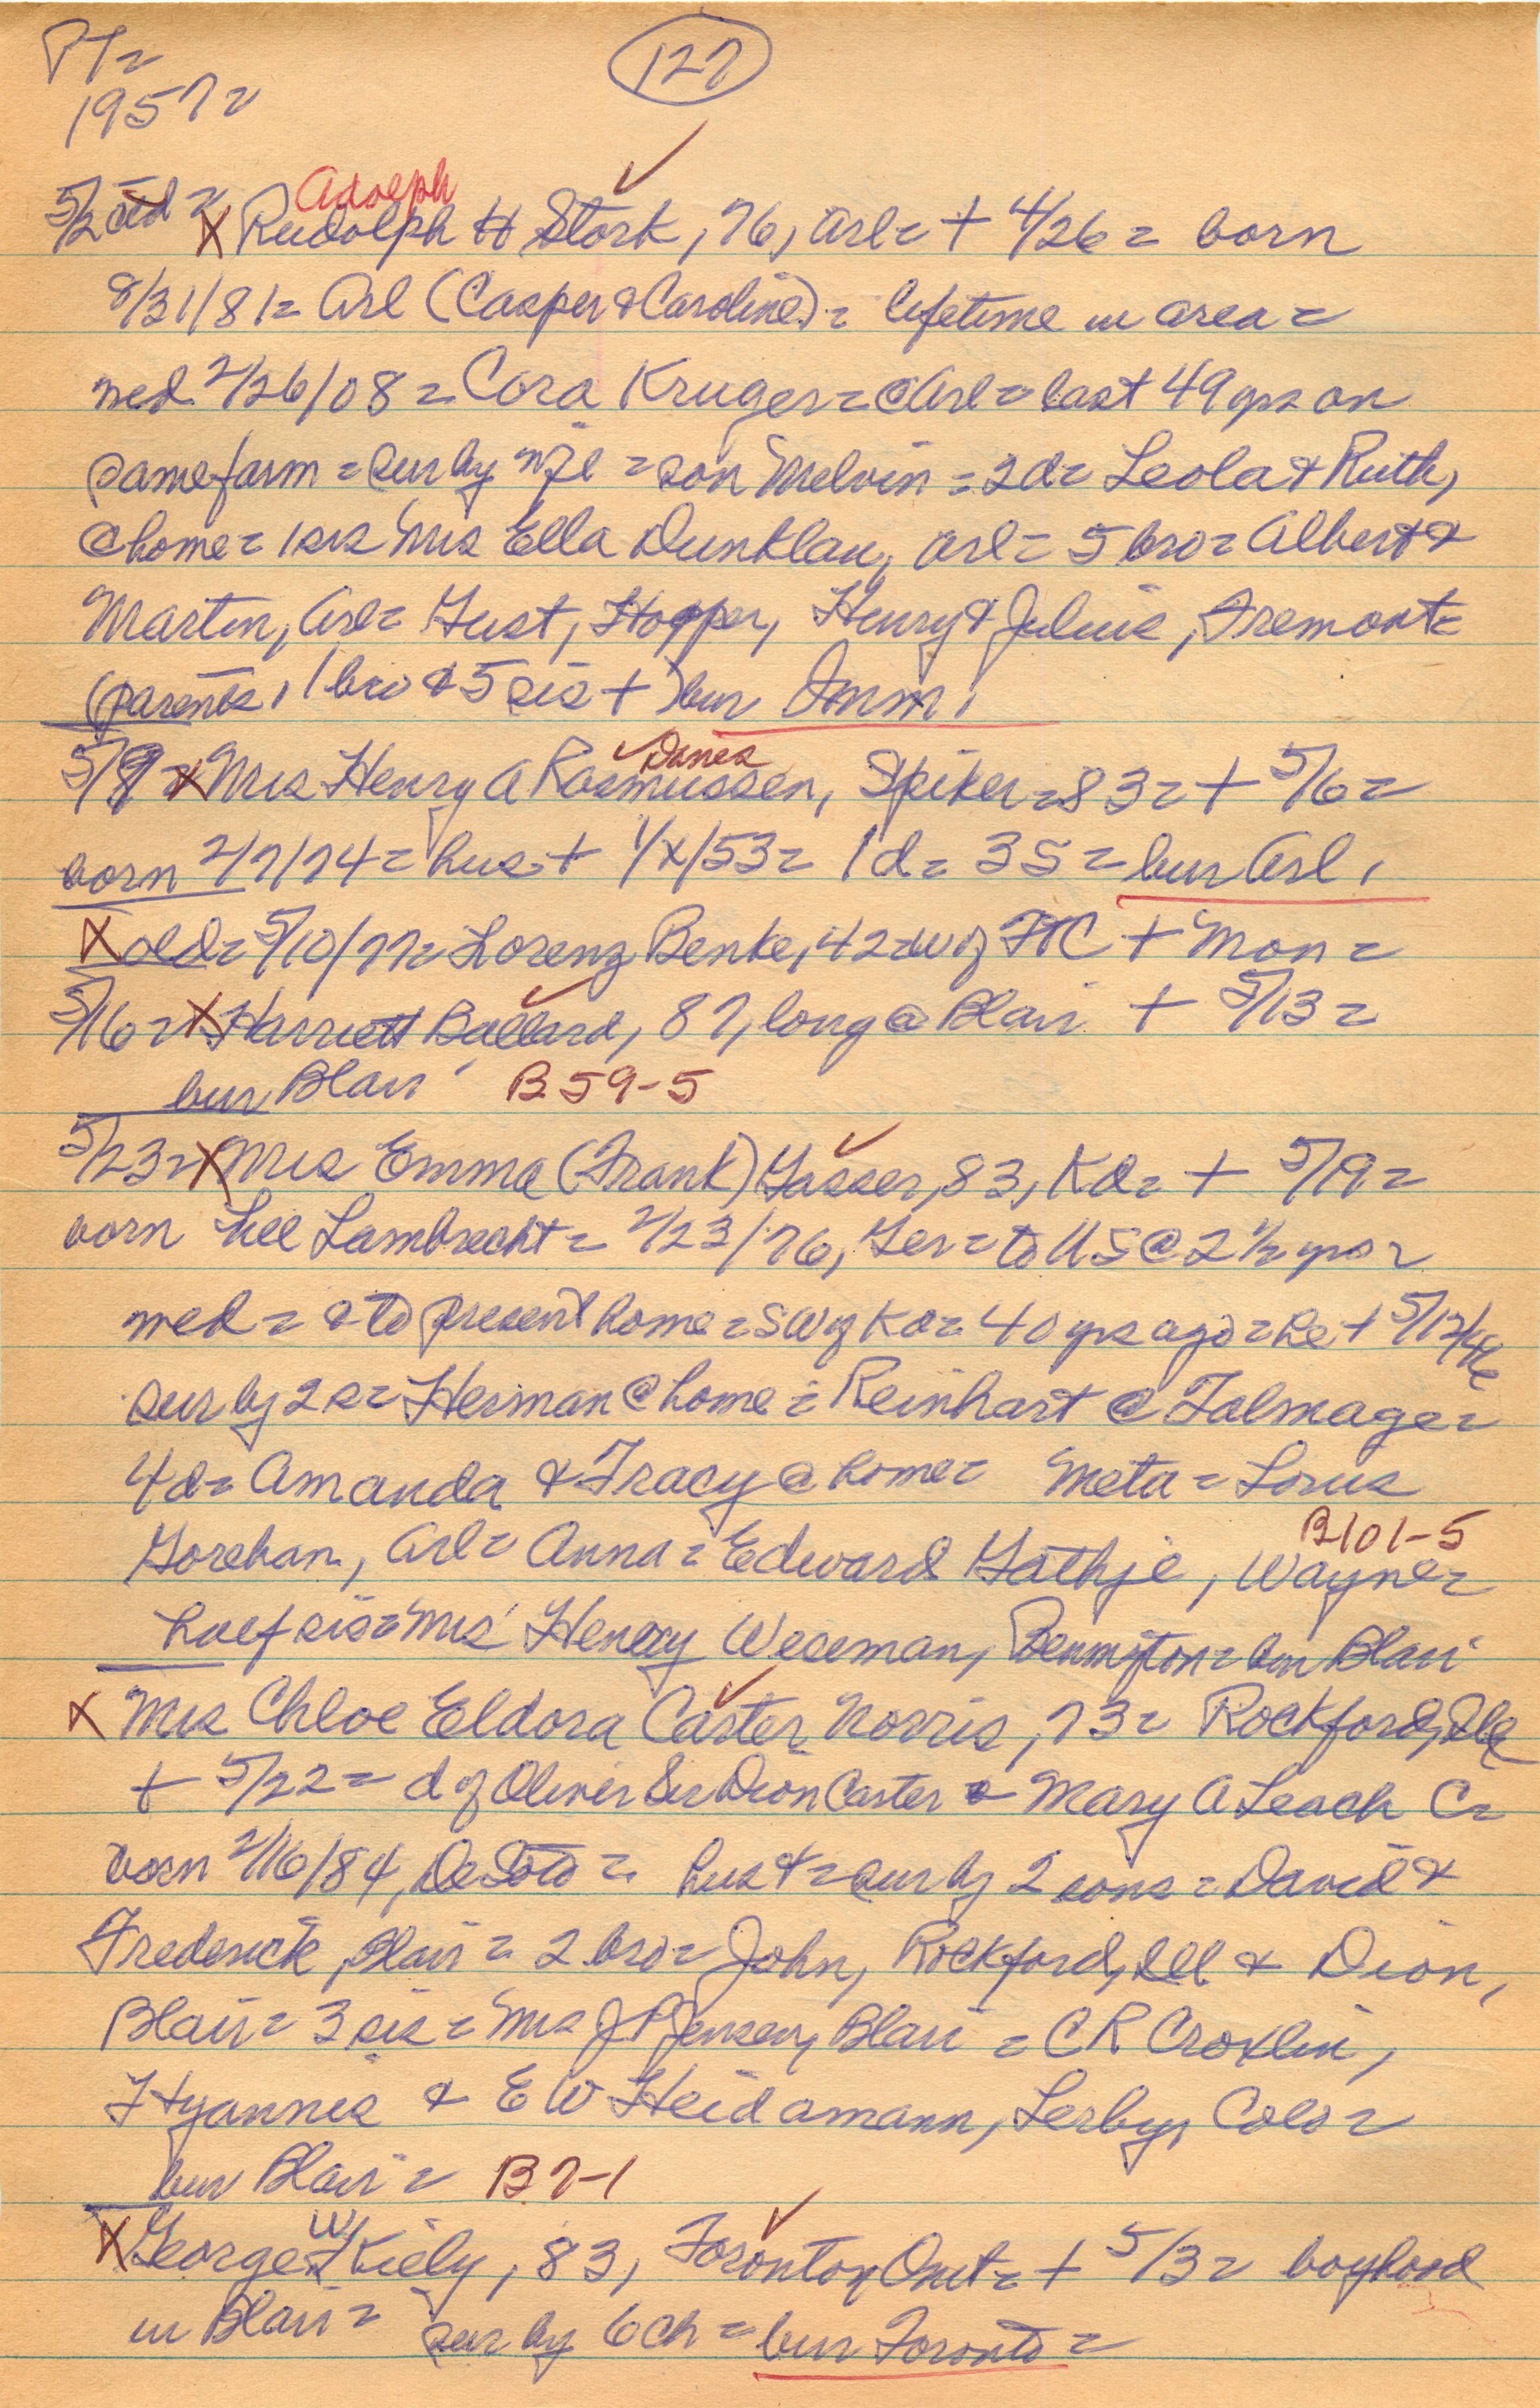 PT=
1957=
127
Adolph
5/2 old = X Rudolph H Stork, 76, Arl = + 4/26 = born
8/31/81 = Arl (Casper & Caroline) = lifetime in area =
med 2/26/08 = Cora Kruger = @ Arl = last 49 yrs on
same farm = sur by wfe = son Melvin = 2d = Leola & Ruth,
@ home = 1 sis Mrs Ella Dunklau, Arl = 5 bro = Albert &
Martin, Arl = Gust, Hooper, Henry & Julius, Fremont =
(parents, 1 bro & 5 sis +) bur Imm,
Danes
5/9 = X Mrs Henry A Rasmussen, Spiker = 83 = + 5/6 =
born 2/7/74 = hus + 1/x/53 = 1d = 3S = bur Arl,
X old = 5/10/77 = Lorenz Benke, 42 = W of FTC + Mon =
5/16 = X Harriett Ballard, 87, long @ Blair + 5/13 =
bur Blair B 59-5
5/23 = X Mrs Emma (Frank) Gasser, 83, Kd = + 5/19 =
born Lambrecht = 2/23/76, Ger = to US @ 2 1/2 yrs =
med = & to present home = SW of Kd = 40 yrs ago = he + 5/12/46
sur by 2 s = Herman @ home = Reinhart @ Talmage =
4d = Amanda & Tracy @ home = Meta = Lorus
B101-5
Goreham, Arl = Anna = Edward Gathje, Wayne =
half sis = Mrs Henry Weseman, Bennington = bur Blair
X Mrs Chloe Eldora Caster Norris, 73 = Rockford, Ill
+ 5/22 = d of Oliver Dion Caster & Mary A Leach C =
born 2/16/84, DeSoto = hus + = sur by 2 sons = David &
Frederick, Blair = 2 bro = John, Rockford, Ill & Dion,
Blair = 3 sis = Mrs J P Jensen, Blair = C R Croxlin,
Hyannis & E W Heidamann, Lerby, Colo =
bur Blair = B 7-1
X George W Kiely, 83, Toronto, Ont = + 5/3 = boyhood
in Blair = sur by 6 ch = bur Toronto =